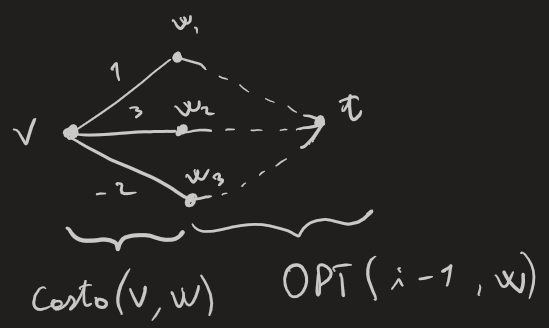 w₁
1
3
w₂
t
v
w₃
-2
Costo(v, w)
OPT(i-1, w)